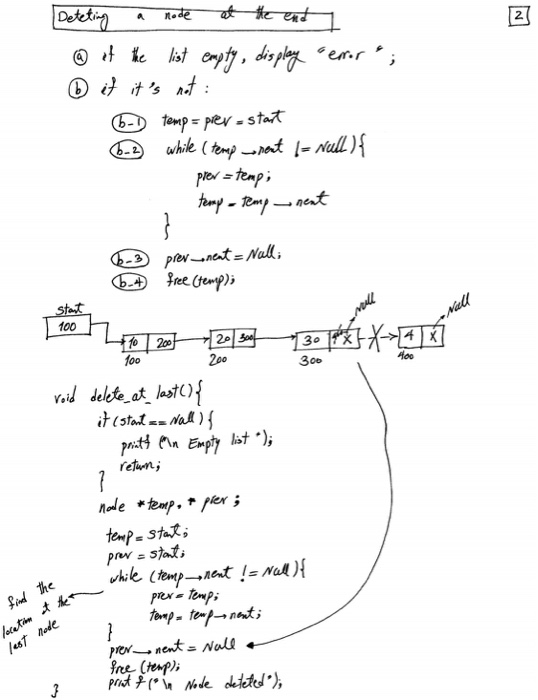 Deteting a node at the end
2
ⓐ if the list empty, display "error";
ⓑ if it's not:
b-1 temp = prev = start
b-2 while (temp → nent != Null) {
prev = temp;
temp = temp → nent
}
b-3 prev → nent = Null;
b-4 free (temp);
start
100
Null
Null
10 200
20 300
30 X
4 X
100
200
300
400
void delete_at_last() {
if (start == Null) {
printf ("\n Empty list");
return;
}
node *temp, * prev ;
temp = start;
prev = start;
while (temp → nent != Null) {
prev = temp;
temp = temp → nent;
}
find the
location at the
last node
prev → nent = Null
free (temp);
print f ("\n Node deteted");
}